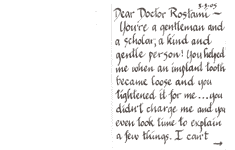 3-3-05
Dear Doctor Rostami —
You're a gentleman and
a scholar, a kind and
gentle person! You helped
me when an implant tooth
became loose and you
tightened it for me....you
didn't charge me and you
even took time to explain
a few things. I can't